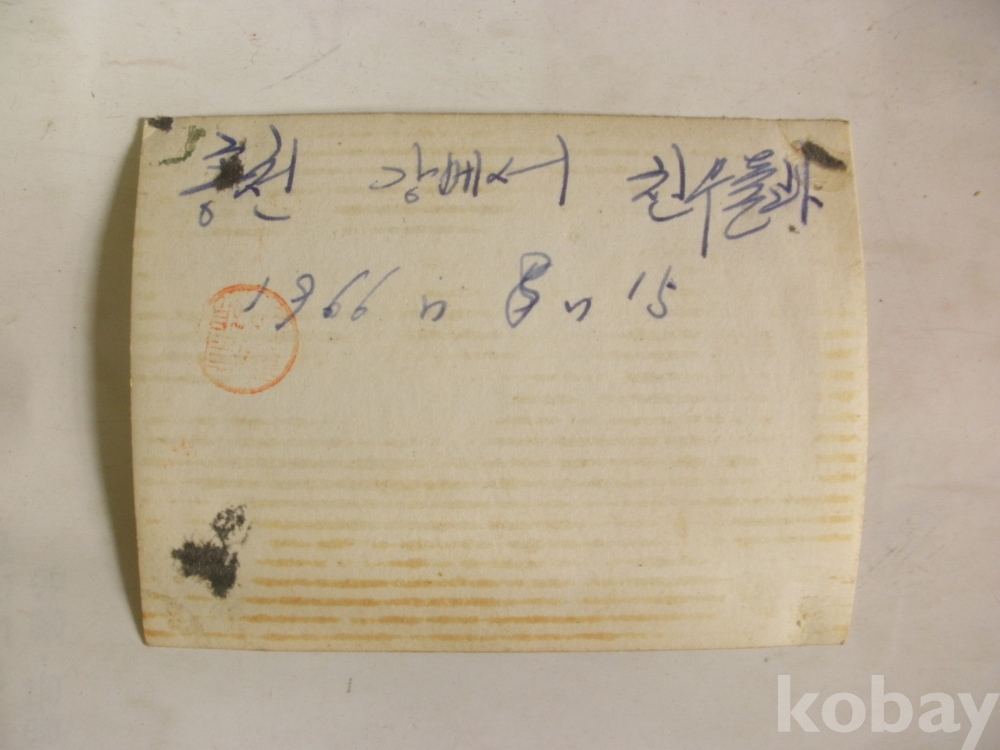 홍천 강베서 친우들과
1966 〃 8 〃 15
kobay